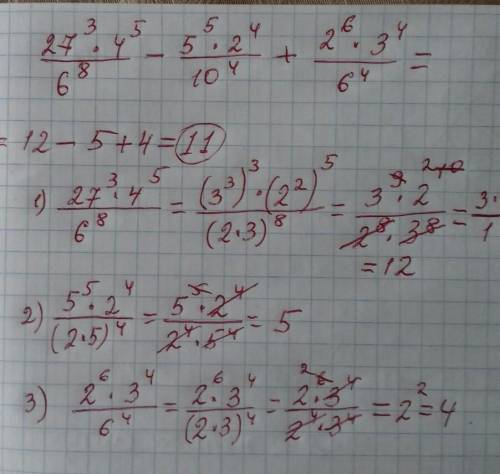 27³·4⁵/6⁸ − 5⁵·2⁴/10⁴ + 2⁶·3⁴/6⁴ =
= 12 − 5 + 4 = 11
1) 27³·4⁵/6⁸ = (3³)³·(2²)⁵/(2·3)⁸ = 3⁹·2¹⁰/2⁸·3⁸ = 3·/1
= 12
2) 5⁵·2⁴/(2·5)⁴ = 5⁵·2⁴/2⁴·5⁴ = 5
3) 2⁶·3⁴/6⁴ = 2⁶·3⁴/(2·3)⁴ = 2⁶·3⁴/2⁴·3⁴ = 2² = 4